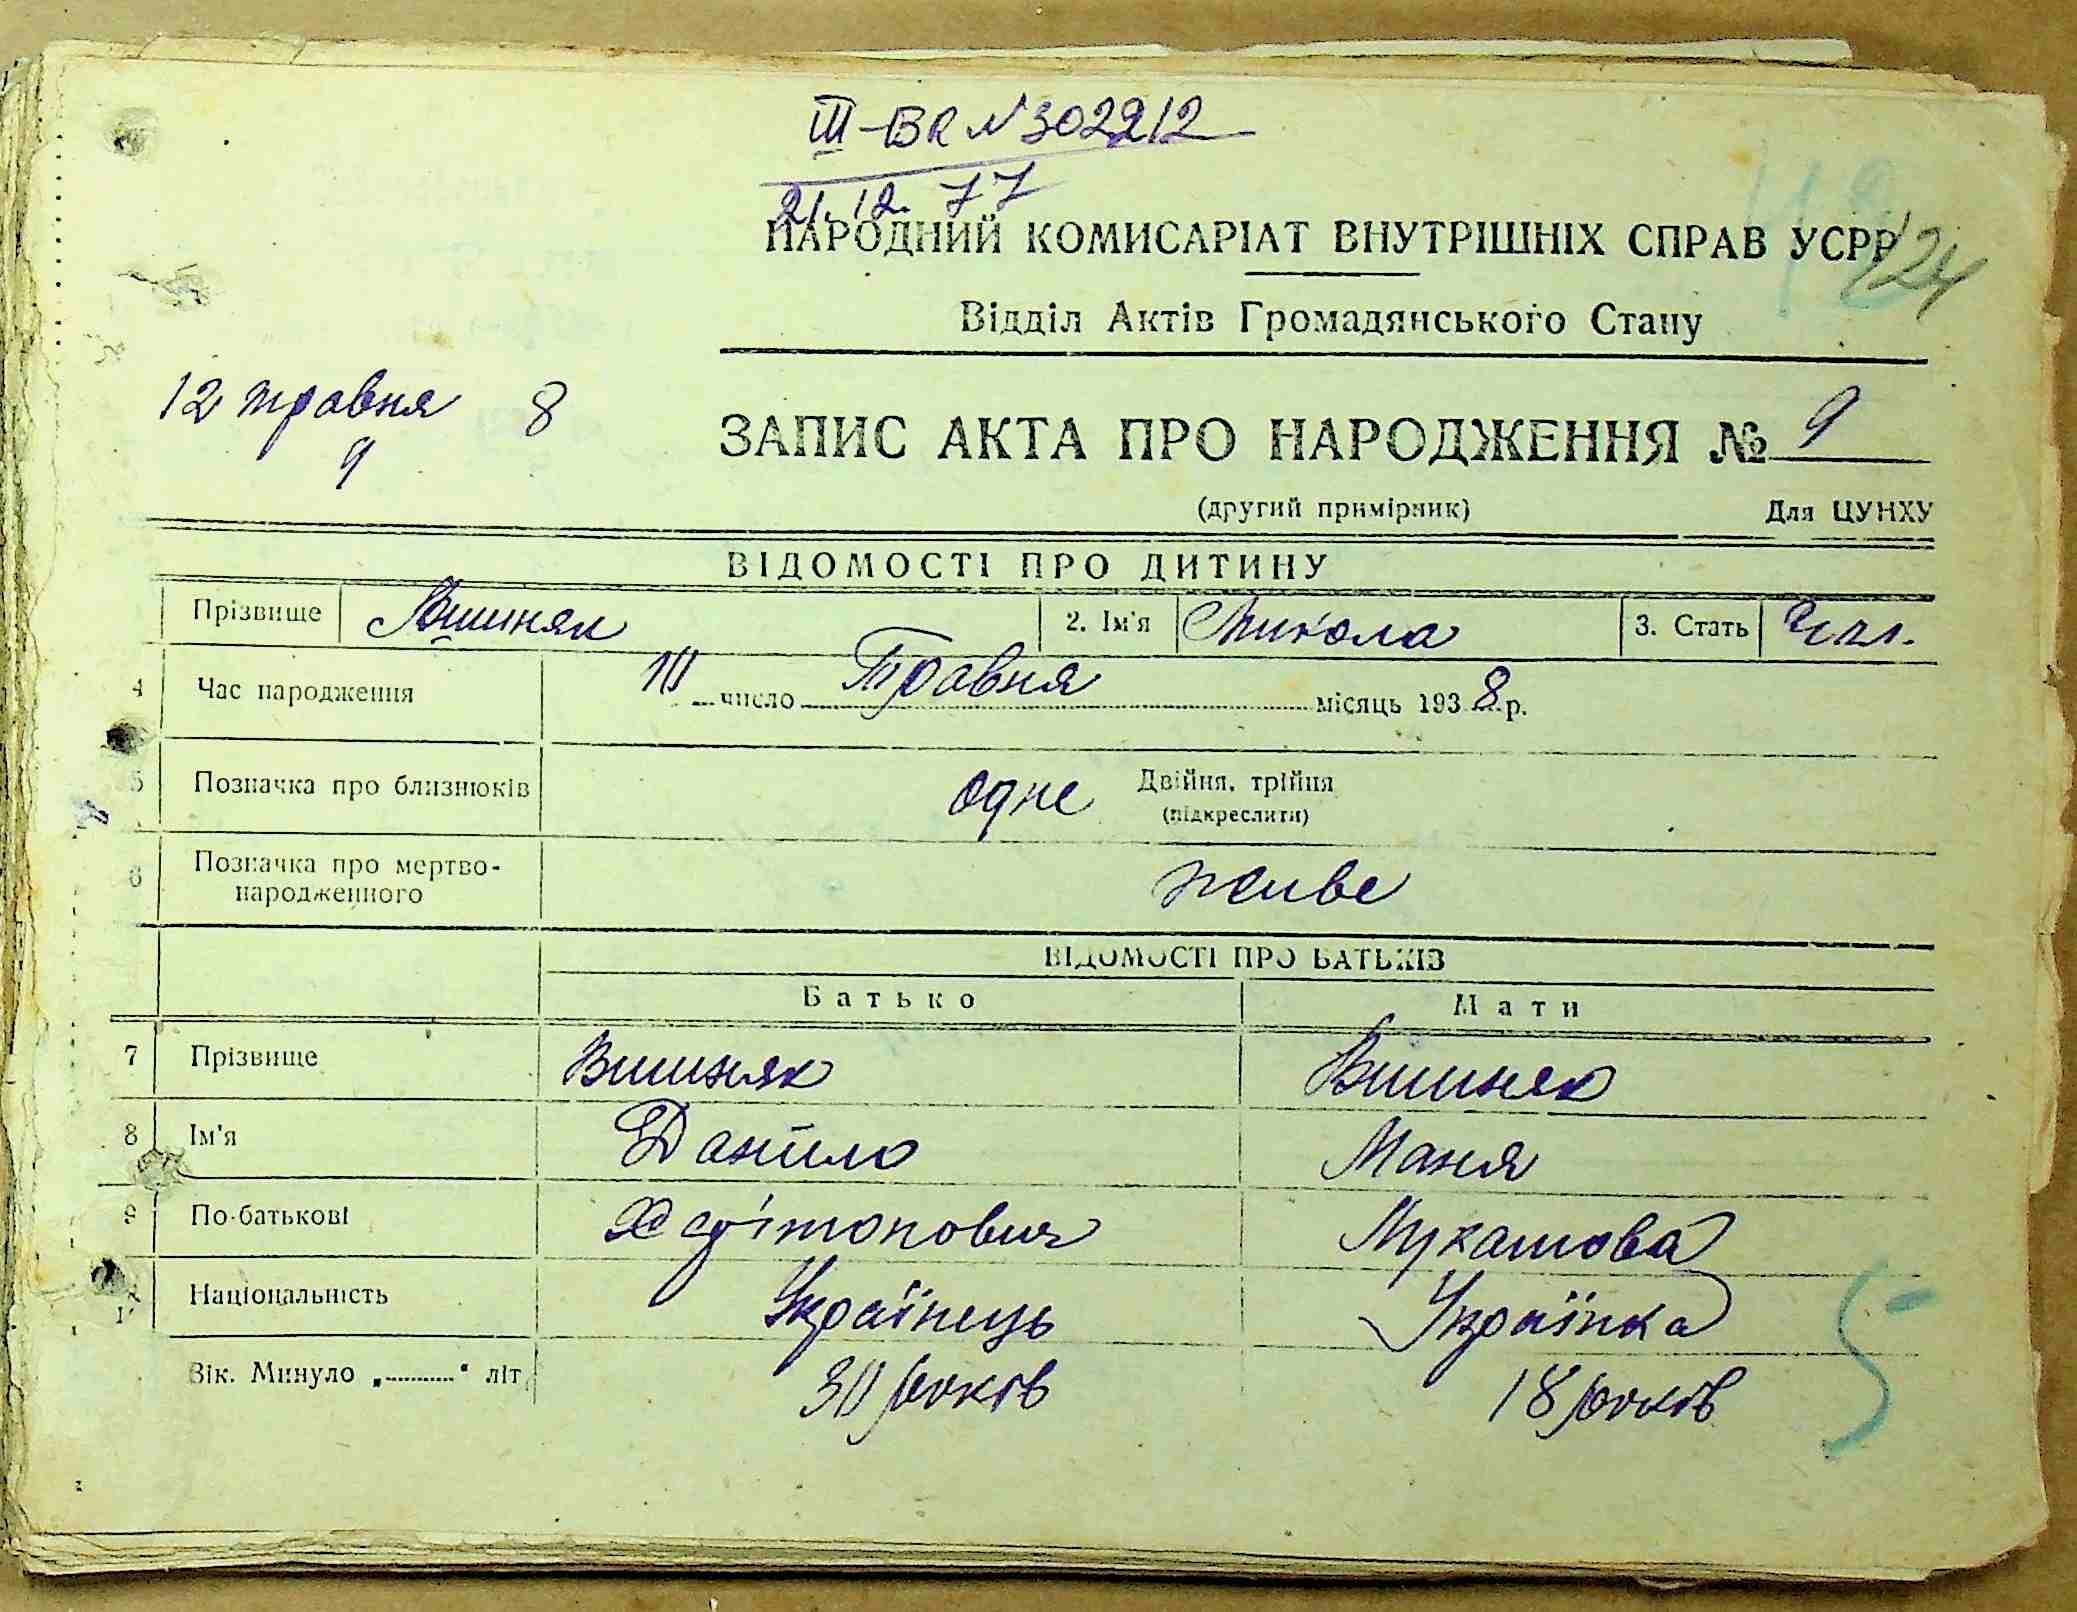 III-БК № 302212
21.12.77
НАРОДНИЙ КОМИСАРІАТ ВНУТРІШНІХ СПРАВ УСРР
124
Відділ Актів Громадянського Стану
12 травня 8
9
ЗАПИС АКТА ПРО НАРОДЖЕННЯ № 9
(другий примірник) Для ЦУНХУ
ВІДОМОСТІ ПРО ДИТИНУ
Прізвище Вишняк 2. Ім'я Микола 3. Стать чол.
4 Час народження 10 число Травня місяць 1938 р.
5 Позначка про близнюків одне Двійня, трійня
(підкреслити)
6 Позначка про мертво-
народженного живе
ВІДОМОСТІ ПРО БАТЬКІВ
Батько Мати
7 Прізвище Вишняк Вишняк
8 Ім'я Данило Маня
9 По-батькові Лукашова
Національність Українець Українка
Вік. Минуло „..........“ літ 30 років 18 років
5